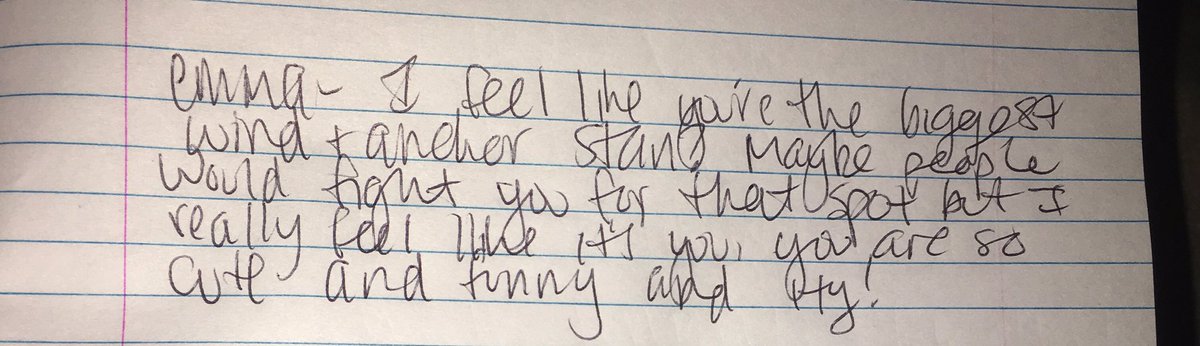 emma- I feel like you're the biggest
wind + anchor stan. Maybe people
would fight you for that spot but I
really feel like it's you, you are so
cute and funny and